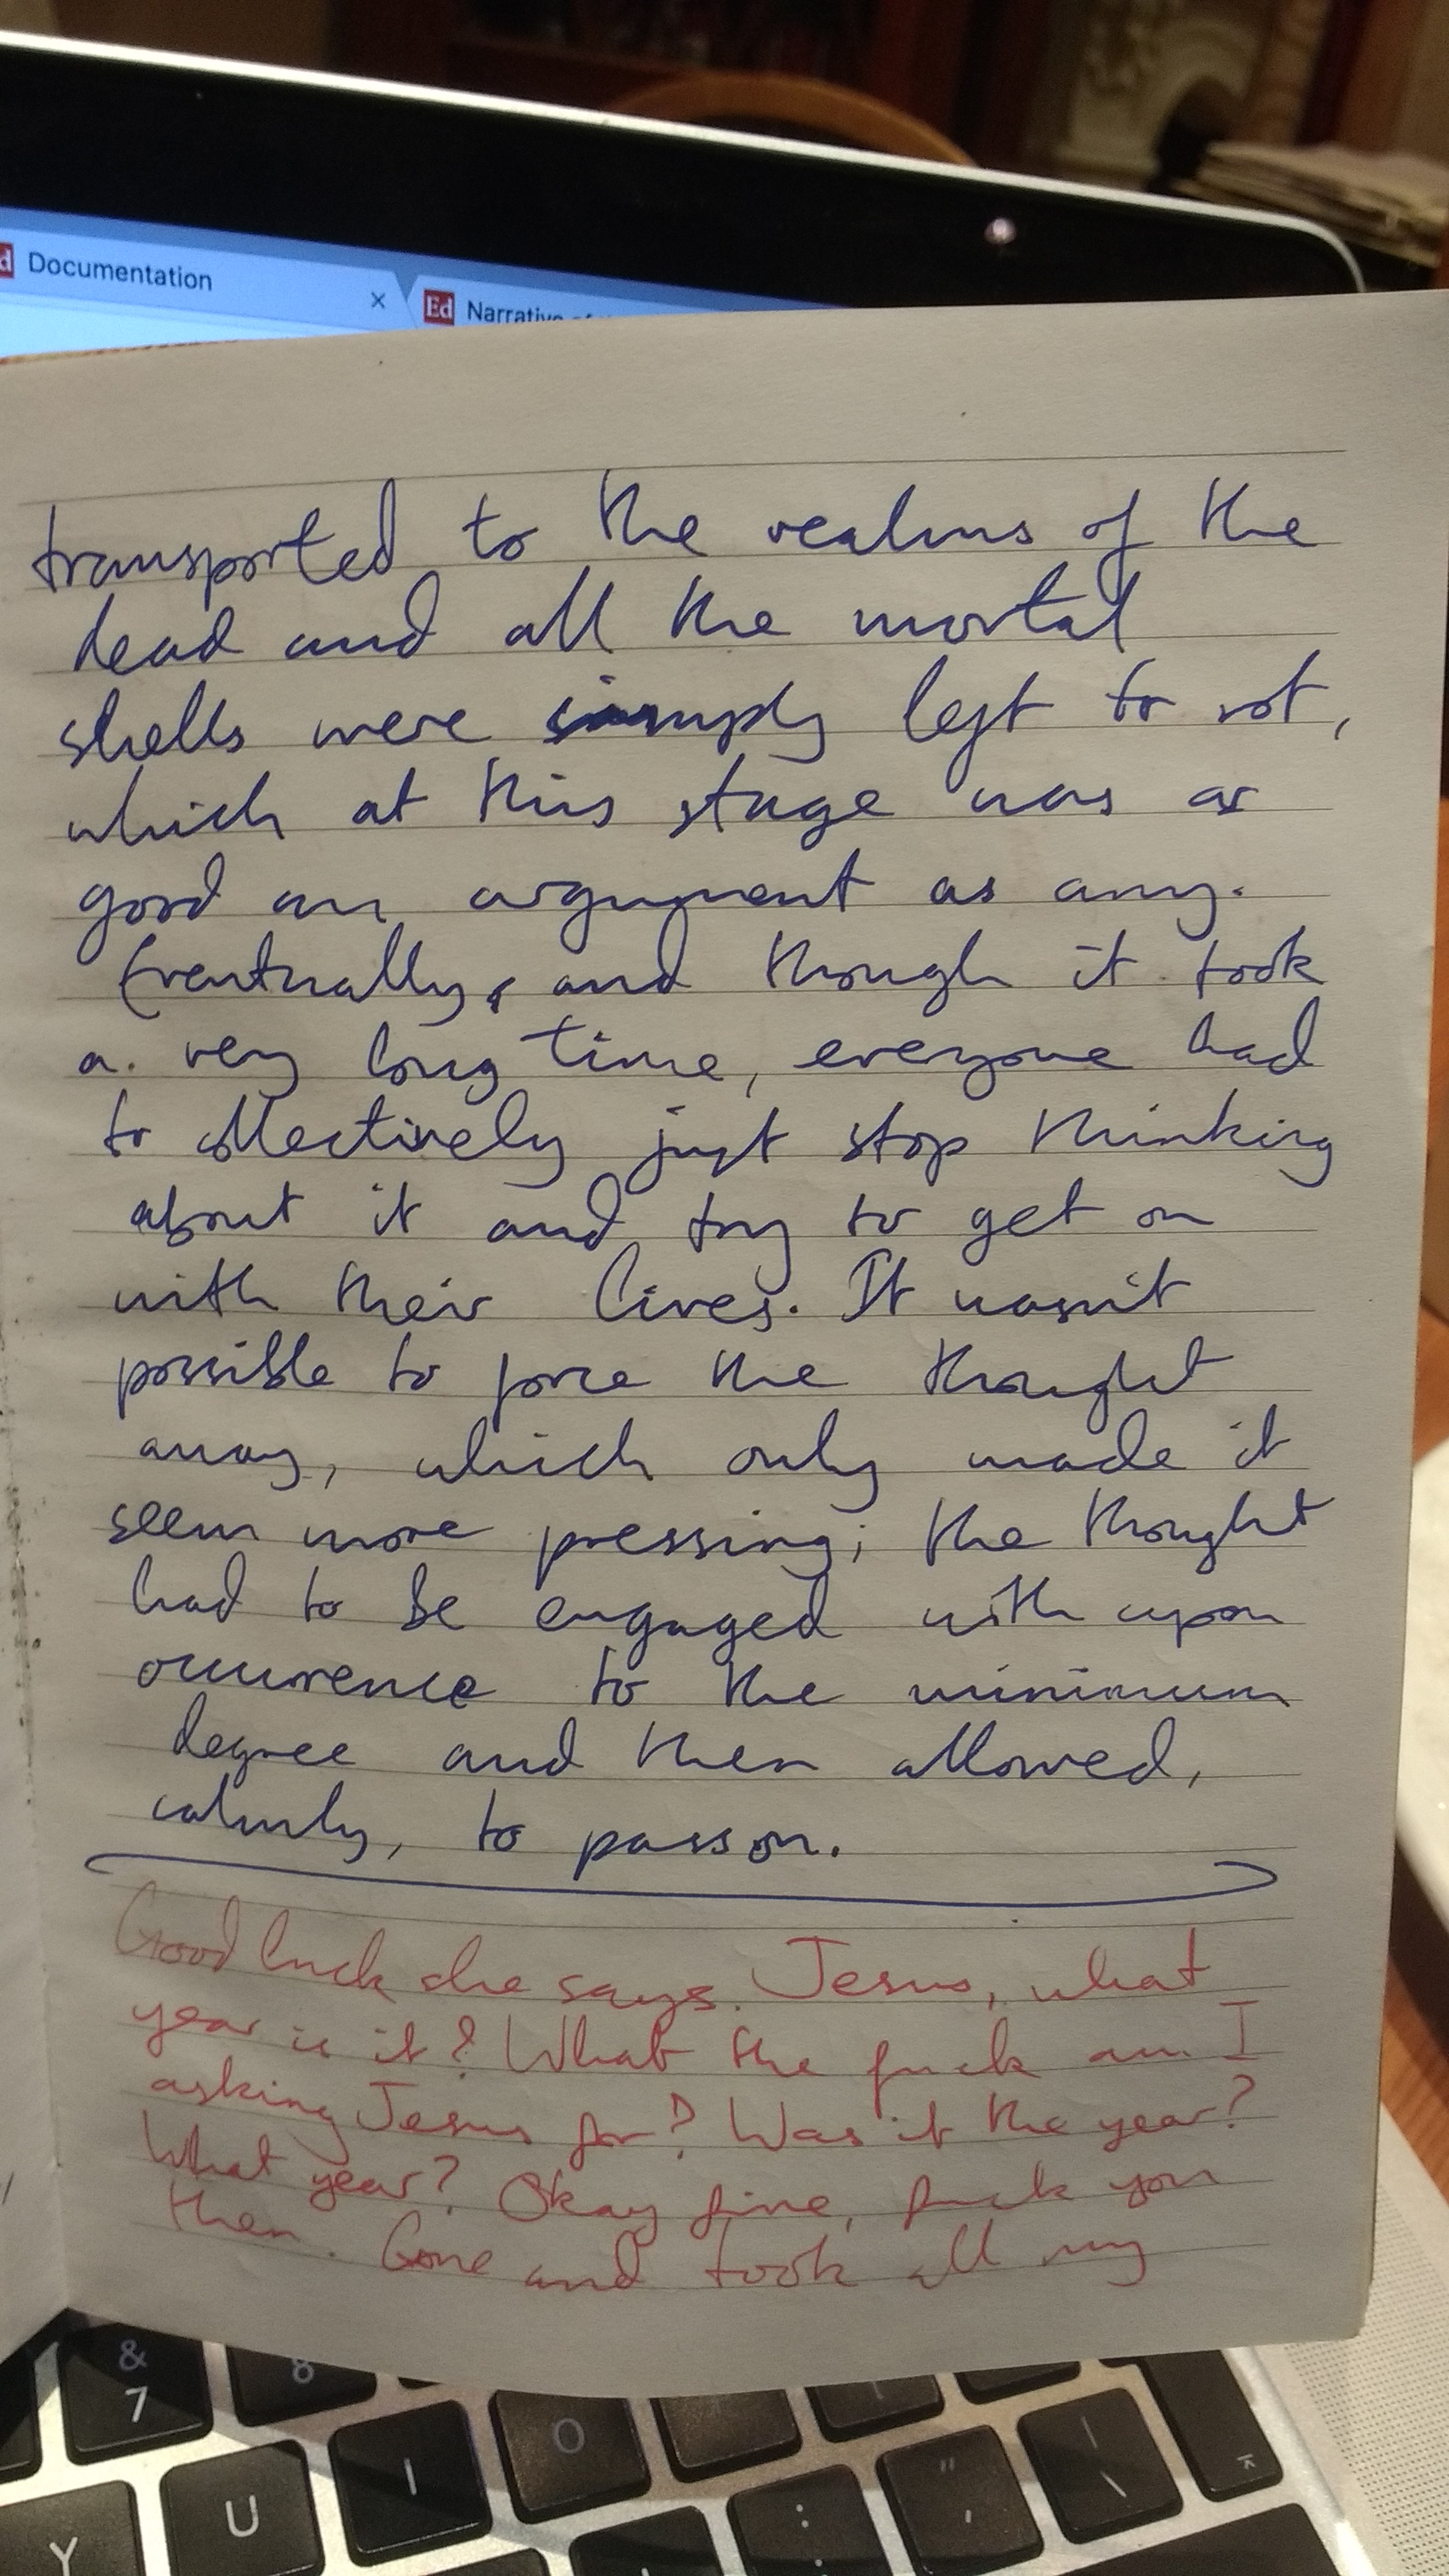 Documentation
×
Ed Narrative of
transported to the realms of the
dead and all the mortal
shells were simply left to rot,
which at this stage was as
good an argument as any.
Eventually, and though it took
a very long time, everyone had
to collectively just stop thinking
about it and try to get on
with their lives. It wasn't
possible to force the thought
away, which only made it
seem more pressing; the thought
had to be engaged with upon
occurrence to the minimum
degree and then allowed,
calmly, to pass on.
Good luck she says. Jesus, what
year is it? What the fuck am I
asking Jesus for? Was it the year?
What year? Okay fine, fuck you
then. Gone and took all my
&
7
8
U
I
O
Y
"
'
:
;
|
\